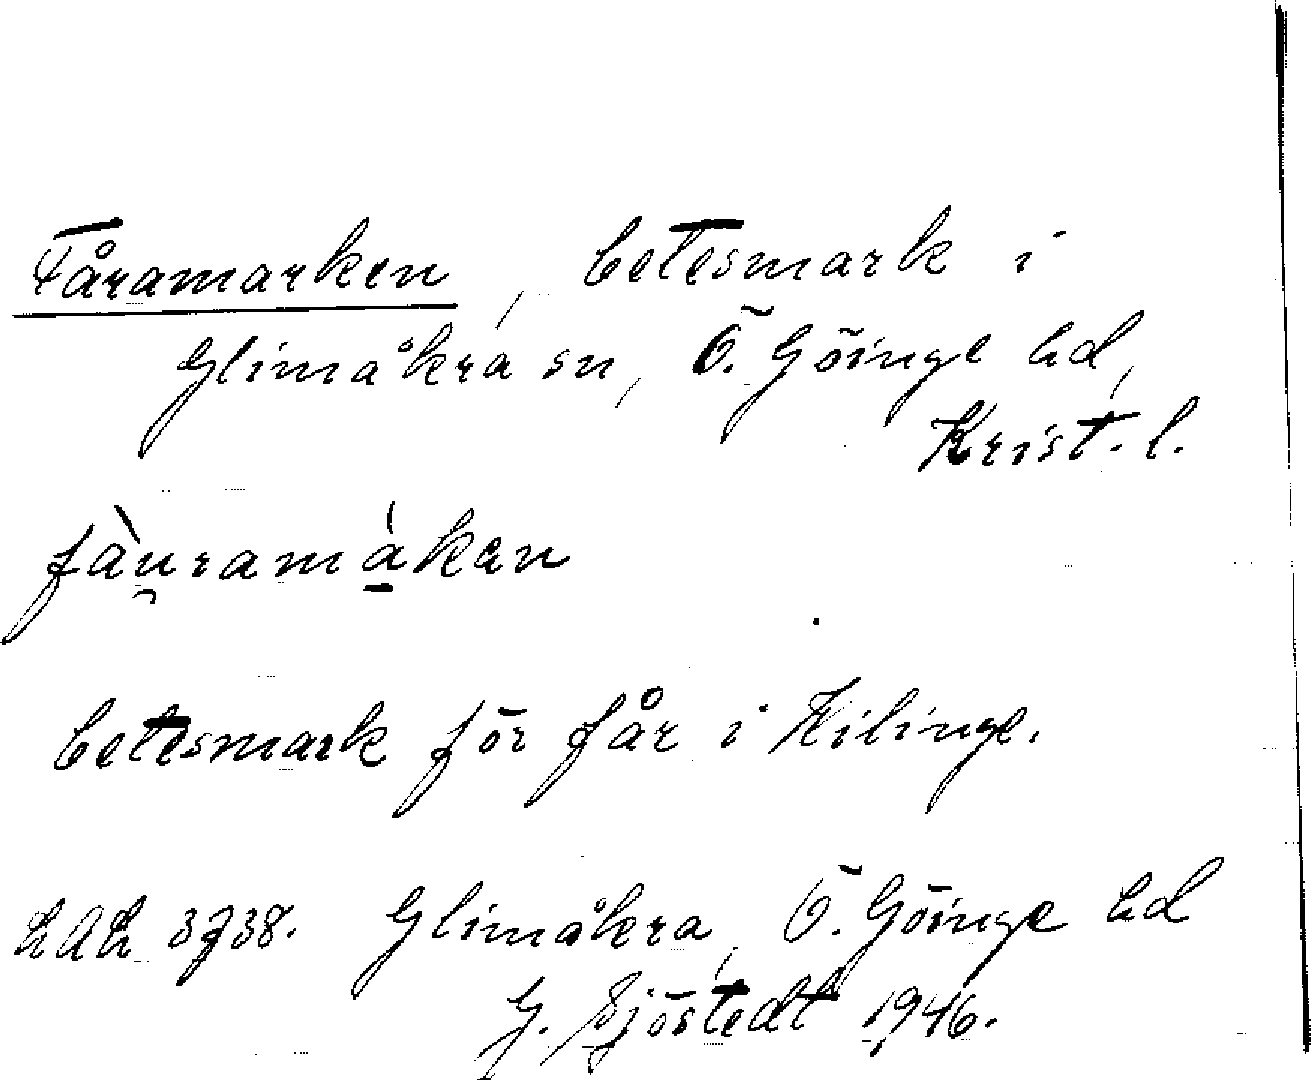 Fåramarken, betesmark i
Glimåkra sn, Ö. Göinge hd,
Krist. l.
fàu̯ramá̱kan
betesmark för får i Kilinge.
LAL 3738. Glimåkra, Ö. Göinge hd
G. Sjöstedt 1946.